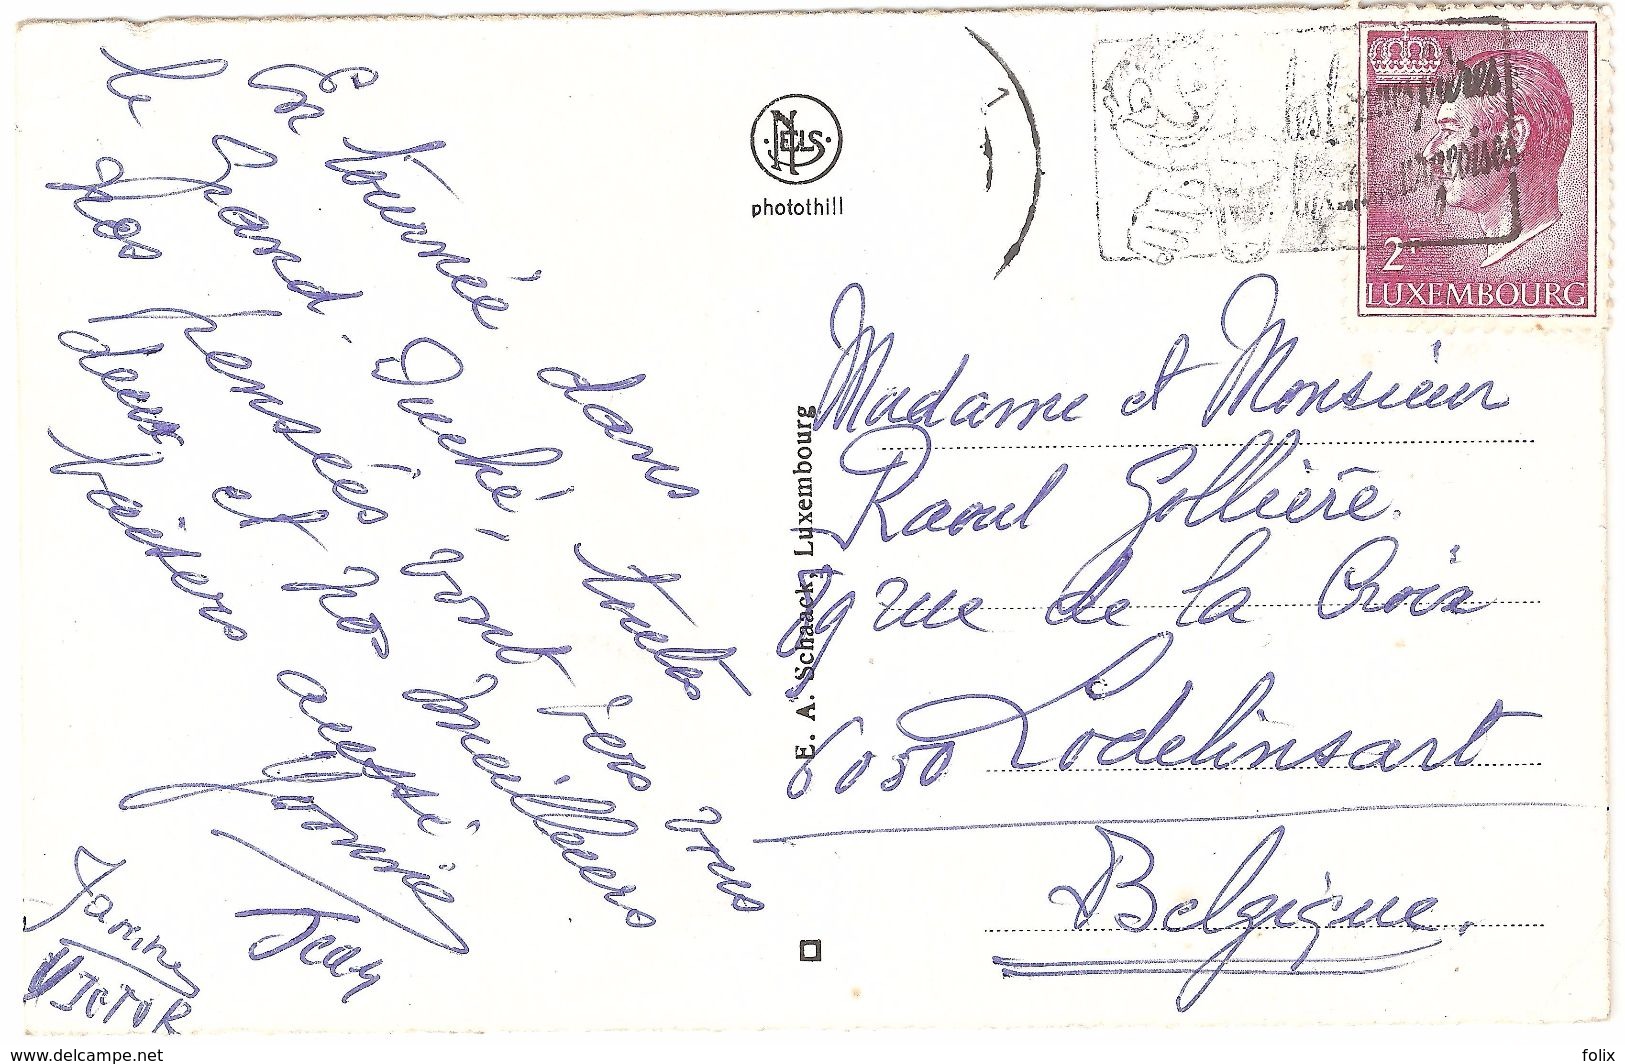 En tournée dans
le Grand. Duché, toutes
nos pensées vont vers vous
deux et nos meilleurs
baisers aussi
Yonnie
Jean
Janine
VICTOR
NELS
photothill
E. A. Schaack, Luxembourg
les
2F
LUXEMBOURG
Madame et Monsieur
Raoul Gollière.
89 rue de la Croix
6050 Lodelinsart
Belgique.
www.delcampe.net
folix